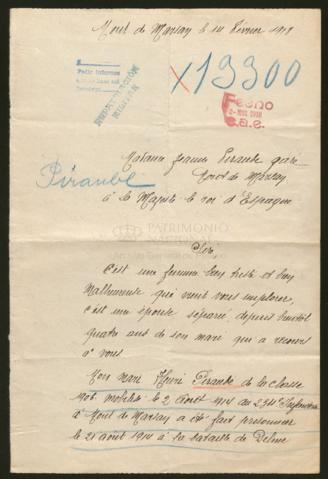 Mont de Marsan le 14 Février 1918
Pedir informes
x 13300
REPATRIACIÓN
MILITAR
Fecho
2-MAR. 1918
C.a.e.
Madame Jeanne Piraube gare
Mont de Marsan
Piraube
à sa Majesté le roi d'Espagne
PATRIMONIO
NACIONAL
Sire
C'est une femme bien triste et bien
Malheureuse qui vient vous implorer,
c'est une épouse séparé depuis bientôt
quatre ans de son mari qui a recours
à vous
Mon mari Henri Piraube de la classe
1906 mobilisé le 2 Août 1914 au 234e Infanterie
à Mont de Marsan a été fait prisonnier
le 20 août 1914 à la bataille de Delme